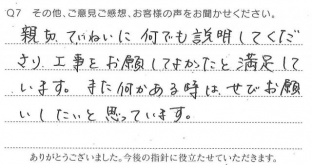 Q7 その他、ご意見ご感想、お客様の声をお聞かせください。
親切、ていねいに何でも説明してくだ
さり、工事をお願いしてよかったと満足して
います。また何かある時は、ぜひお願
いしたいと思っています。
ありがとうございました。今後の指針に役立たせていただきます。